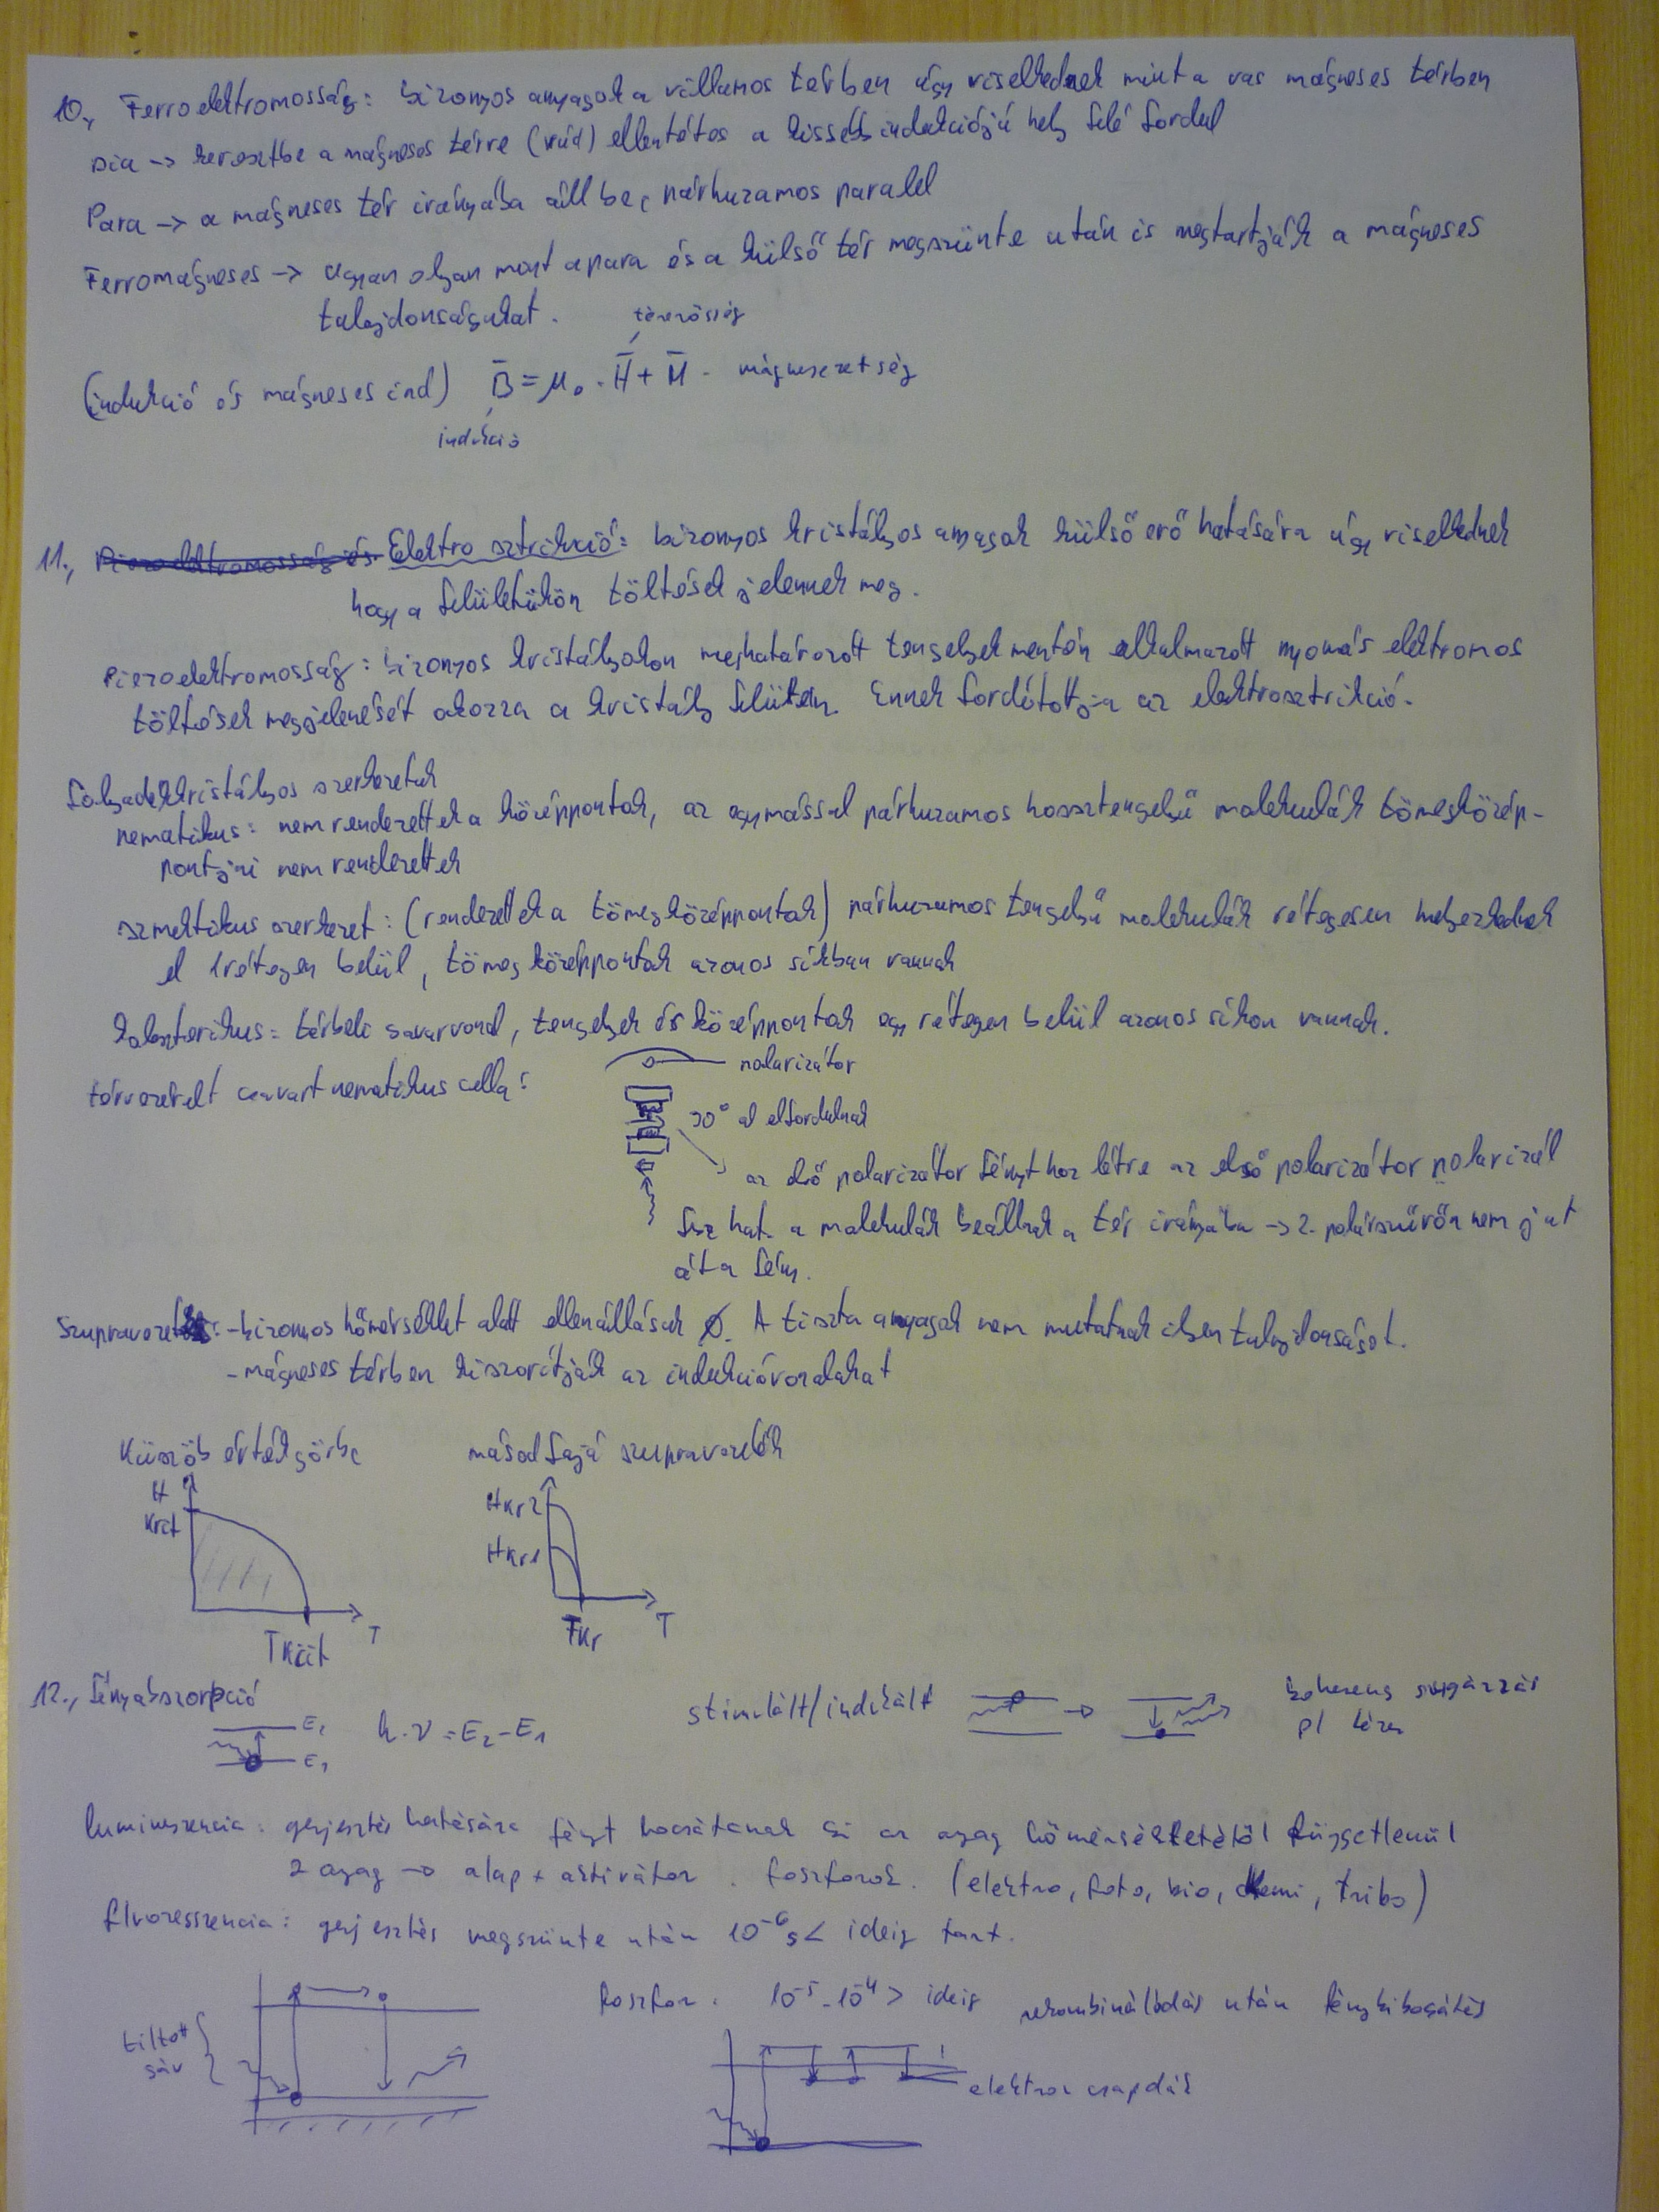 10., Ferroelektromosság: bizonyos anyagok a villamos térben úgy viselkednek mint a vas mágneses térben
Dia -> keresztbe a mágneses térre (rúd) ellentétes a kissebb indukciójú hely felé fordul
Para -> a mágneses tér irányába áll be, párhuzamos paralel
Ferromágneses -> ugyan olyan mint a para és a külső tér megszünte után is megtartják a mágneses
tulajdonságukat.
térerősség
(indukció és mágneses ind) B̄ = μ₀ · H̄ + M̄ - mágnesezettség
indukció
11., Piezoelektromosság és Elektrosztrikció: bizonyos kristályos anyagok külső erő hatására úgy viselkednek
hogy a felületükön töltések jelennek meg.
Piezoelektromosság: bizonyos kristályokon meghatározott tengelyek mentén alkalmazott nyomás elektromos
töltések megjelenését okozza a kristály felületén. Ennek fordítottja az elektrosztrikció.
folyadékkristályos szerkezetek
nematikus: nem rendezettek a középpontok, az egymással párhuzamos hossztengelyű molekulák tömegközép-
pontjai nem rendezettek
szmektikus szerkezet: (rendezettek a tömegközéppontok) párhuzamos tengelyű molekulák rétegesen helyezkednek
el 1 rétegen belül, tömegközéppontok azonos síkban vannak
koleszterikus: térbeli csavarvonal, tengelyek és középpontok egy rétegen belül azonos síkon vannak.
polarizátor
térvezérelt csavart nematikus cella:
90° al elfordulnak
az első polarizátor fényt hoz létre az első polarizátor polarizál
fesz hat. a molekulák beállnak a tér irányába -> 2. polárszűrőn nem jut
át a fény.
Szupravezetés: - bizonyos hőmérséklet alatt ellenállásuk Ø. A tiszta anyagok nem mutatnak ilyen tulajdonságot.
- mágneses térben kiszorítják az indukcióvonalakat
Küszöb értékgörbe
másodfajú szupravezetők
H
Krit
T Krit
T
Hkr2
Hkr1
Tkr
T
12., fényabszorpció
E₂
E₁
h·ν = E₂ - E₁
stimulált/indukált
koherens sugárzás
pl lézer
lumineszencia: gerjesztés hatására fényt bocsátanak ki az anyag hőmérsékletétől függetlenül
2 anyag -> alap + aktivátor. foszforok. (elektro, foto, bio, kemi, tribo)
fluoreszcencia: gerjesztés megszünte után 10⁻⁶ s < ideig tart.
foszfor: 10⁻⁵ - 10⁻⁴ > ideig rekombinálódás után fénykibocsátás
tiltott
sáv
elektron csapdák